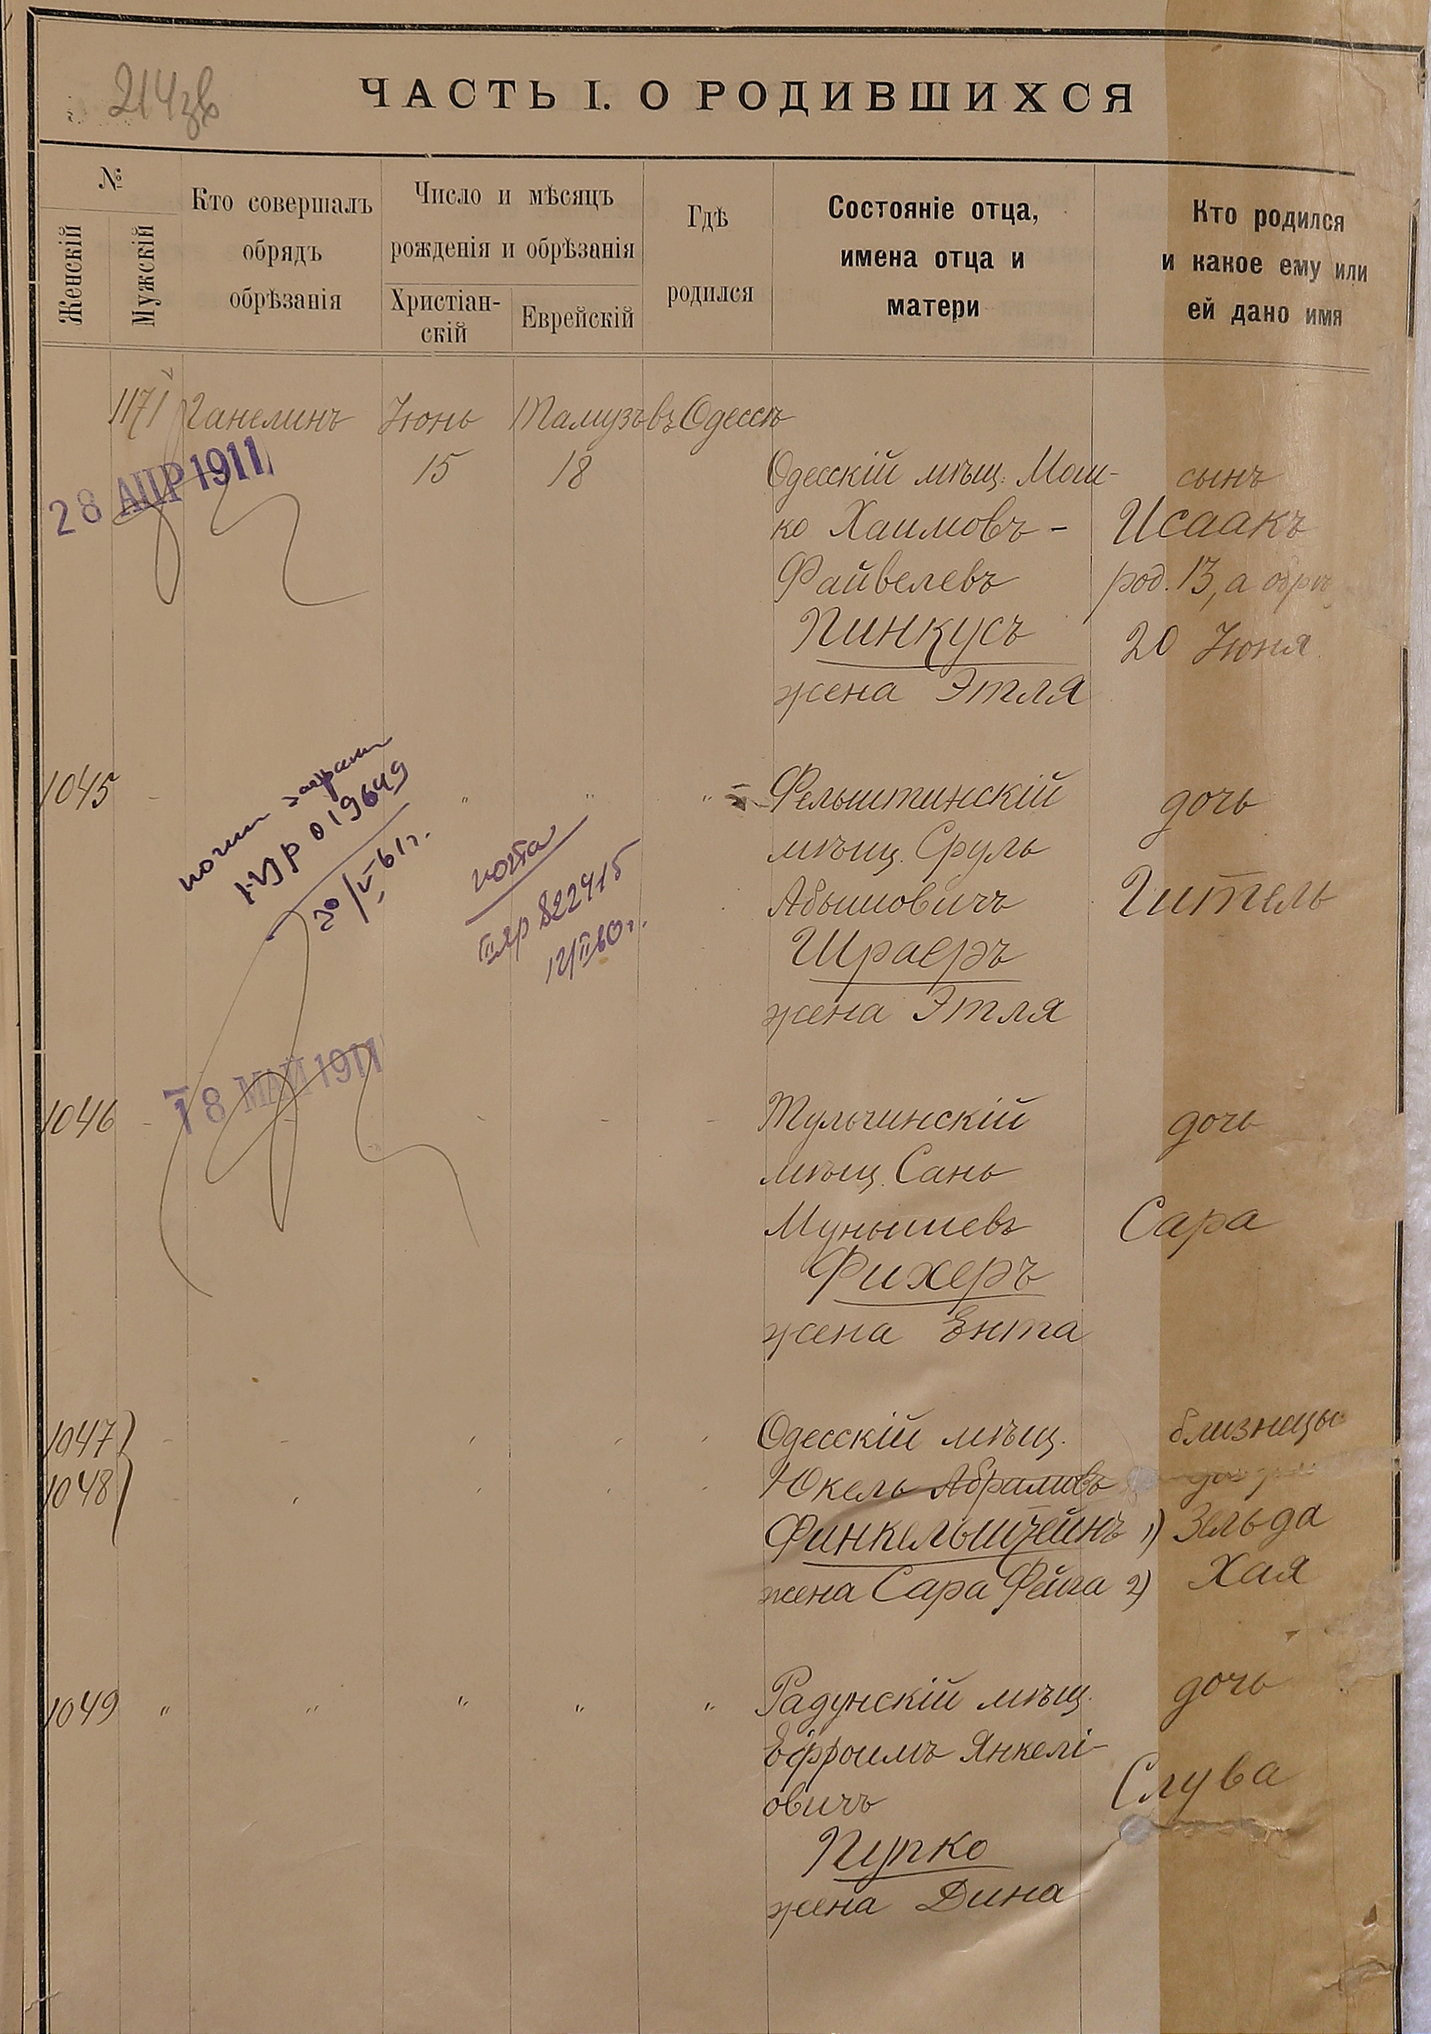 214 зв
ЧАСТЬ I. О РОДИВШИХСЯ
№
Женскій
Мужскій
Кто совершалъ
обрядъ
обрѣзанія
Число и мѣсяцъ
рожденія и обрѣзанія
Христіан-
скій
Еврейскій
Гдѣ
родился
Состояніе отца,
имена отца и
матери
Кто родился
и какое ему или
ей дано имя
1171 Ганелинъ Іюнь Тамузъ въ Одессѣ
15 18
28 АПР 1911
Одесскій мѣщ. Мош-
ко Хаимовъ-
Файвелевъ
Пинкусъ
жена Этля
сынъ
Исаакъ
род. 13, а обрѣ.
20 Іюня
1045 - " " "
019649
30/V 61 г.
822415
12/II 60 г.
Фельштинскій
мѣщ. Сруль
Абышовичъ
Шраеръ
жена Этля
дочь
Гитель
18 МАЙ 1911
1046 - - - -
Тульчинскій
мѣщ. Сань
Мунышевъ
Фихеръ
жена Ента
дочь
Сара
1047
1048
Одесскій мѣщ.
Юкель Абрамовъ
Финкельштейнъ
жена Сара Фейга
близнецы
1) Зельда
2) Хая
1049 " " " " "
Радунскій мѣщ.
Ефроимъ Янкелі-
овичъ
Пупко
жена Дина
дочь
Слува